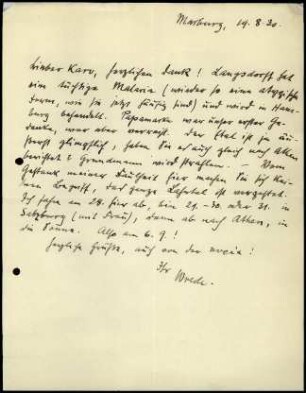 Marburg, 19.8.30.
Lieber Karo, herzlichen Dank! Langsdorff hat
eine tüchtige Malaria (wieder so eine atypische
Form, wie sie jetzt häufig sind) und wird in Ham-
burg behandelt. Papsmarkt war unser erster Ge-
danke, war aber verreist. Der Etat ist ja äu-
sserst glimpflich, haben Sie es auch gleich nach Athen
berichtet? Grundmann wird strahlen. — Vom
Gestank meiner Faulheit hier machen Sie sich kei-
nen Begriff, das ganze Lahntal ist vergiftet.
Ich fahre am 28. hier ab, bin 29.-30. oder 31. in
Salzburg (mit Frau), dann ab nach Athen, in
die Sonne. Also am 6.9.!
Herzliche Grüsse, auch von der
Ihr Wrede.